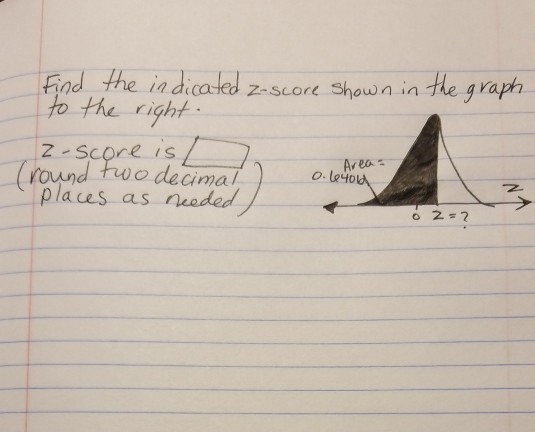 Find the indicated z-score shown in the graph
to the right.
z-score is
(round two decimal
places as needed)
Area=
0.6404
z
0 z=?